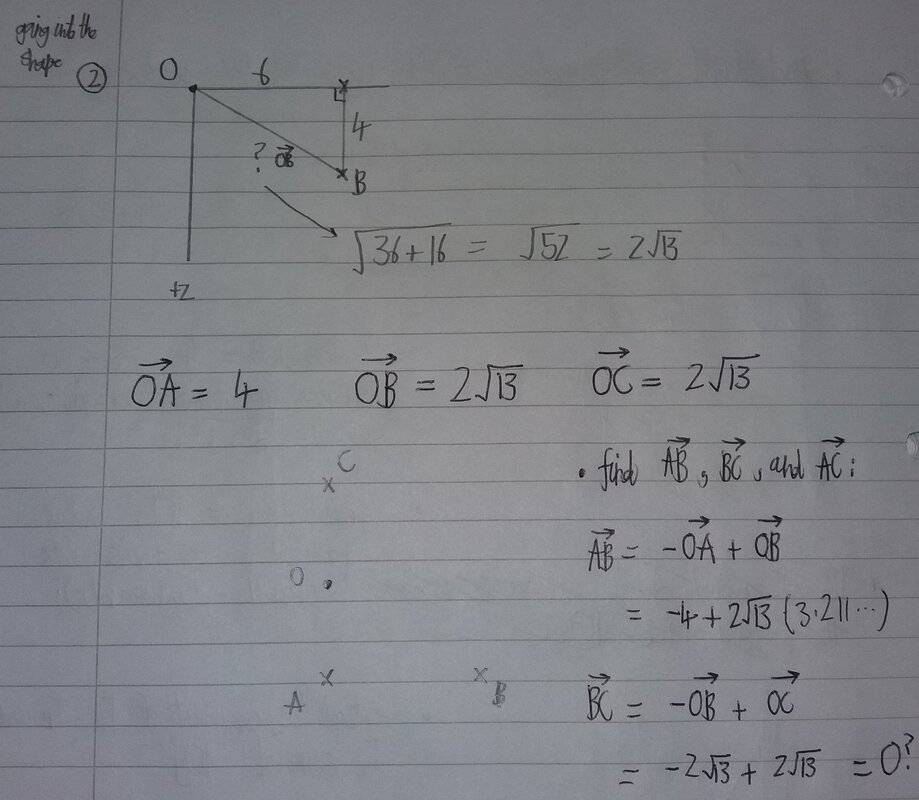 going into the
shape
②
O 6
4
? OB→
B
√36+16 = √52 = 2√13
+z
OA→ = 4 OB→ = 2√13 OC→ = 2√13
C
• find AB→, BC→, and AC→:
AB→ = -OA→ + OB→
O
= -4 + 2√13 (3.211...)
A B
BC→ = -OB→ + OC→
= -2√13 + 2√13 = 0?